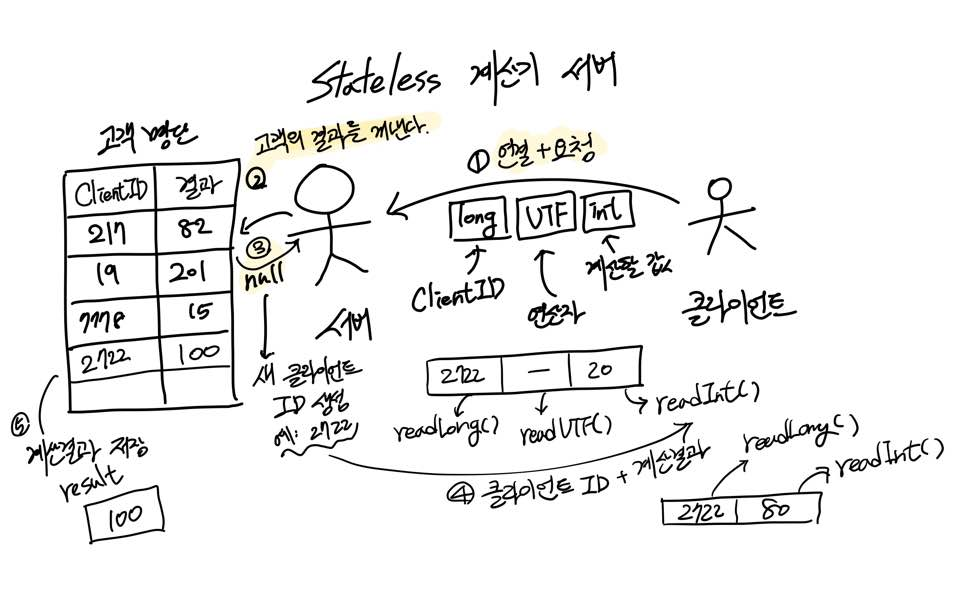 Stateless 계산기 서버
고객 명단
ClientID 결과
217 82
19 201
7778 15
2722 100
② 고객의 결과를 꺼낸다.
③
null
새 클라이언트
ID 생성
예: 2722
서버
① 연결 + 요청
long UTF int
ClientID
연산자
계산할 값
클라이언트
2722 - 20
readLong()
readUTF()
readInt()
④ 클라이언트 ID + 계산결과
readLong()
readInt()
2722 80
⑤
계산결과 저장
result
100